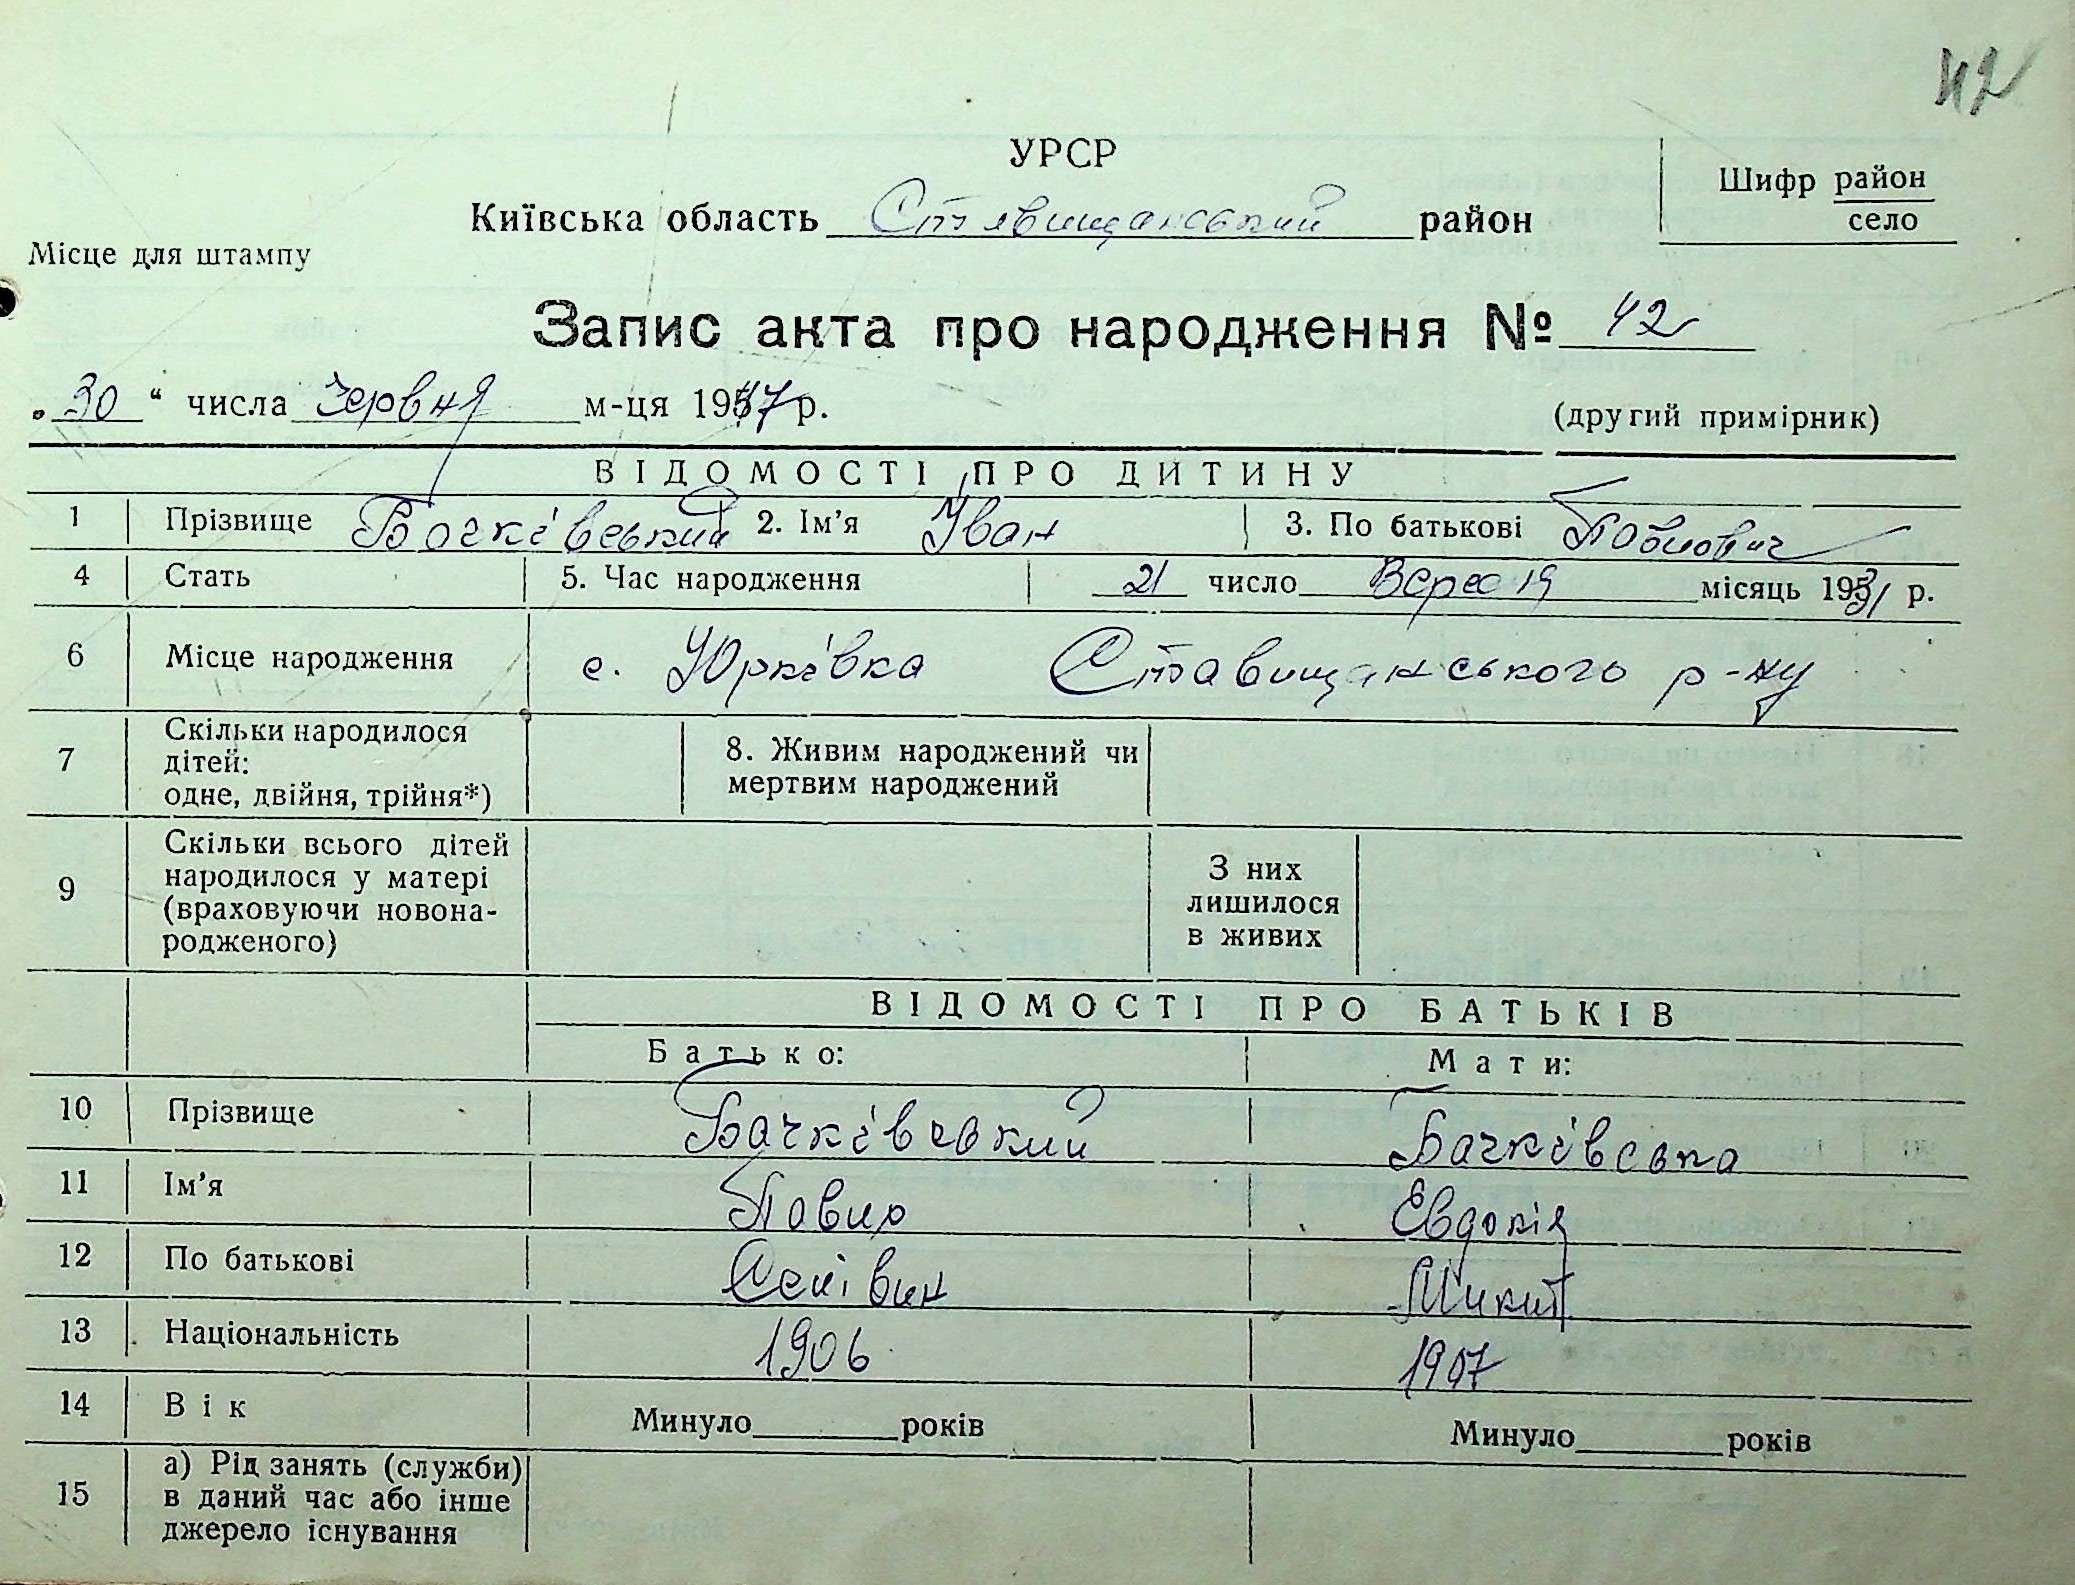 42
УРСР
Київська область Ставищанський район
Шифр район
село
Місце для штампу
Запис акта про народження № 42
„30“ числа Червня м-ця 1947 р.
(другий примірник)
ВІДОМОСТІ ПРО ДИТИНУ
1 Прізвище Бачківський 2. Ім’я Іван 3. По батькові Павлович
4 Стать 5. Час народження 21 число Верес ня місяць 1931 р.
6 Місце народження с. Юрківка Ставищанського р-ну
7 Скільки народилося дітей: одне, двійня, трійня*) 8. Живим народжений чи мертвим народжений
9 Скільки всього дітей народилося у матері (враховуючи новона-
родженого) З них лишилося в живих
ВІДОМОСТІ ПРО БАТЬКІВ
Батько: Мати:
10 Прізвище Бачківський Бачківська
11 Ім’я Павло Євдокія
12 По батькові Микит
13 Національність 1906 1907
14 Вік Минуло років Минуло років
15 а) Рід занять (служби) в даний час або інше джерело існування